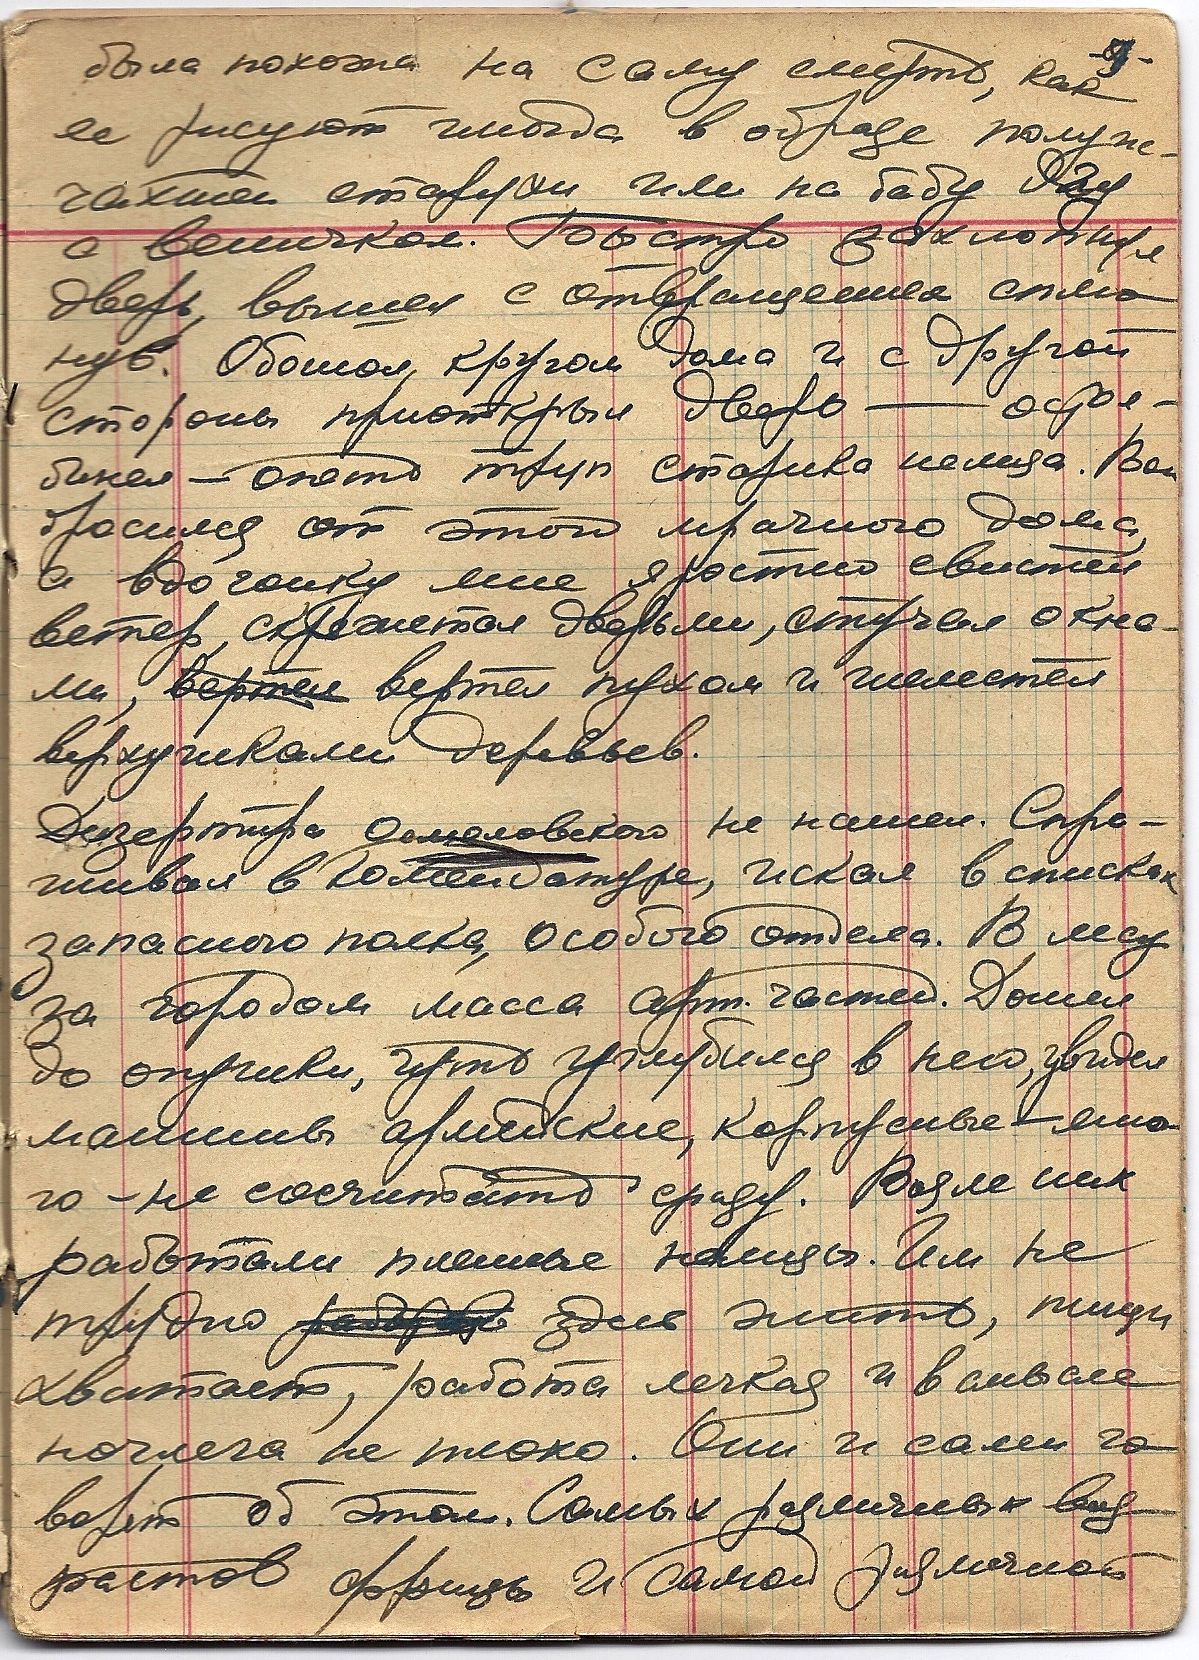 -9-
была похожа на саму смерть, как
ее рисуют иногда в образе полуис-
чахшей старухи или на бабу Ягу
с веничком. Быстро захлопнул
дверь, вышел с отвращением сплю
нув. Обошол кругом дома и с другой
стороны приоткрыл дверь — остол-
бинел — опять труп старика немца.
бросился от этого мрачного дома,
а вдогонку мне яростно свистел
ветер, скрежетал дверьми, стучал окна-
ми, вертел вертел пухом и шелестел
верхушками деревьев.
Дизертира не нашел. Спра-
шивал в комендатуре, искал в списках
запасного полка, Особого отдела. В лесу
за городом масса арт. частей. Дошел
до опушки, чуть углубился в него, увидел
машины армейские, корпусные — мно-
го — не сосчитать сразу. Возле них
работали пленные немцы. Им не
трудно здесь жить, пищи
хватает, работа легкая и в смысле
ночлега не плохо. Они и сами го-
ворят об этом. Самых различных воз-
растов фрицы и самой различной